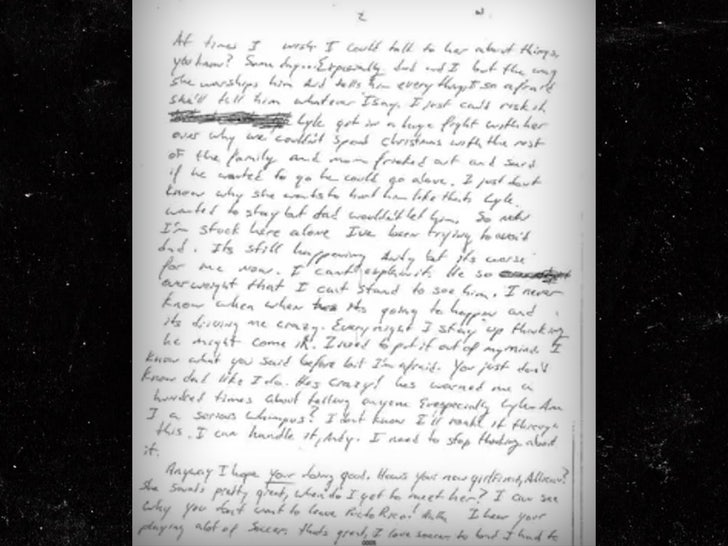 2
At times I wish I could talk to her about things,
you know? Some day... Especially dad and I but the way
she worships him and tells him everything I so afraid
she'll tell him whatever I say. I just can't risk it.
Lyle got in a huge fight with her
over why we couldn't spend Christmas with the rest
of the family and mom freaked out and said
if he wanted to go he could go alone. I just dont
know why she wants to hurt him like that. Lyle
wanted to stay but dad wouldn't let him. So now
I'm stuck here alone I've been trying to avoid
dad. Its still happening Andy but its worse
for me now. I can't explain it. He so
overweight that I cant stand to see him. I never
know when its going to happen and
its driving me crazy. Every night I stay up thinking
he might come in. I need to put it out of my mind. I
know what you said before but I'm afraid. You just don't
know dad like I do. Hes crazy! hes warned me a
hundred times about telling anyone especially Lyle. Am
I a serious whimpus? I dont know I'll make it through
this. I can handle it, Andy. I need to stop thinking about
it.
Anyway I hope your doing good. How's your new girlfriend, Allison?
She sounds pretty great, when do I get to meet her? I can see
why you dont want to leave Puerto Rico! I hear your
playing alot of soccer. thats great, I love soccer to but I had to